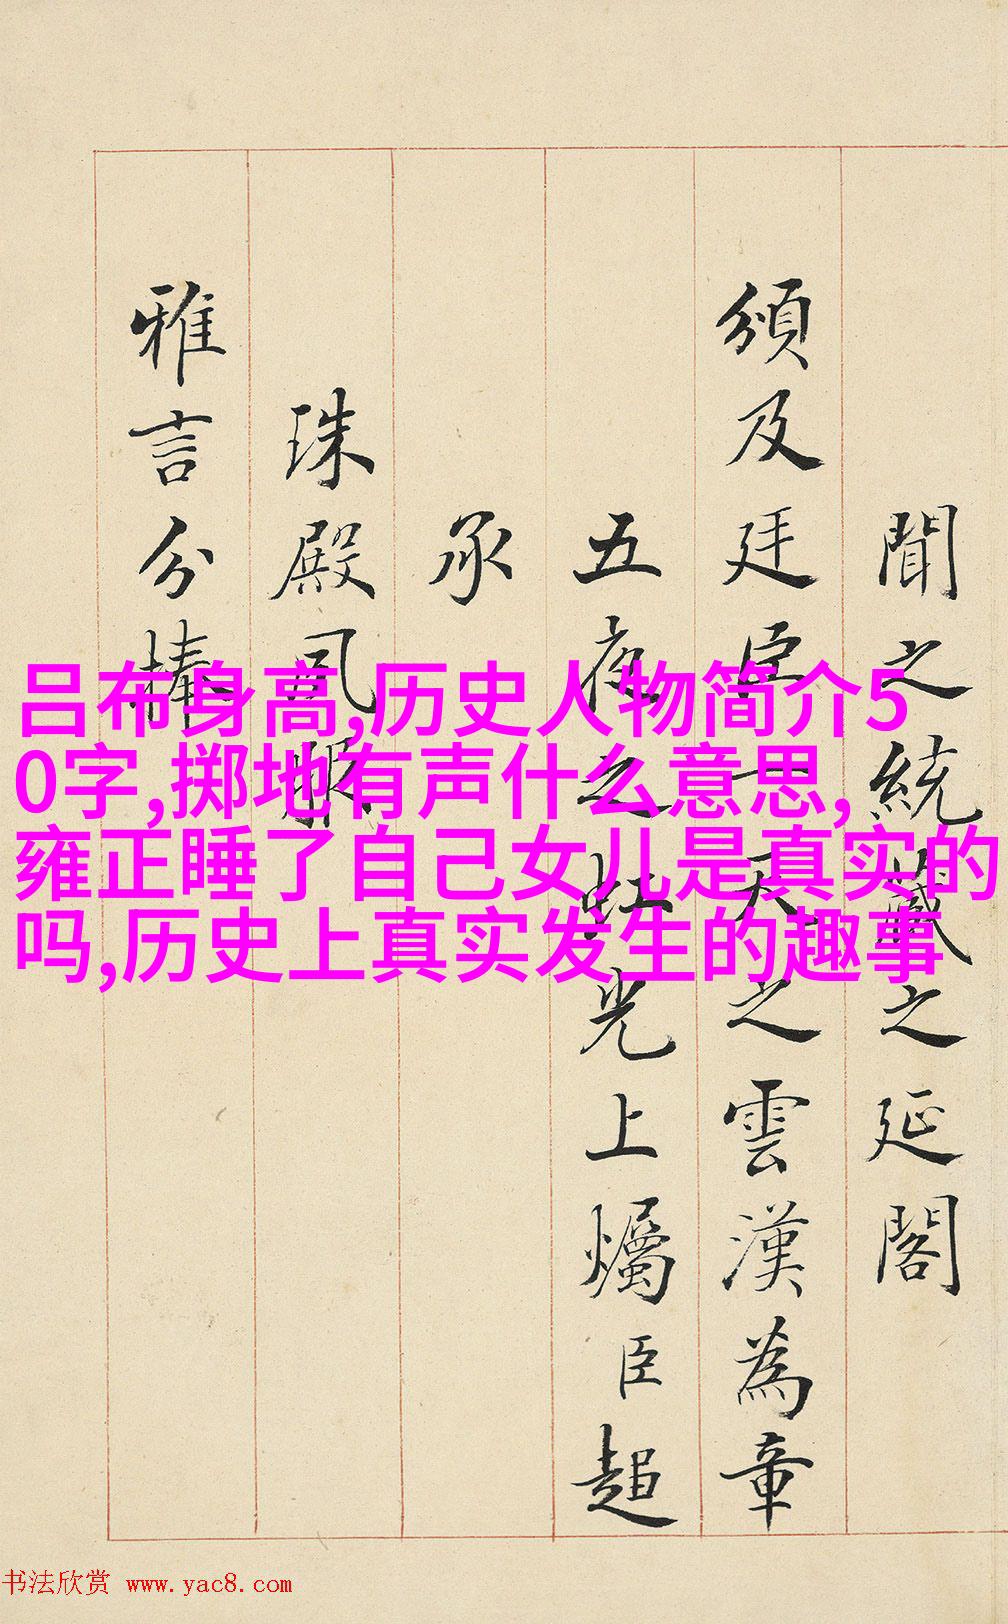 聞之統藏之延閣
頒及廷臣一天之雲漢為章
五夜之虹光上燭臣超
承
珠殿風
雅言分捧
吕布身高,历史人物简介5
0字,掷地有声什么意思,
雍正睡了自己女儿是真实的
吗,历史上真实发生的趣事
书法欣赏 www.yac8.com